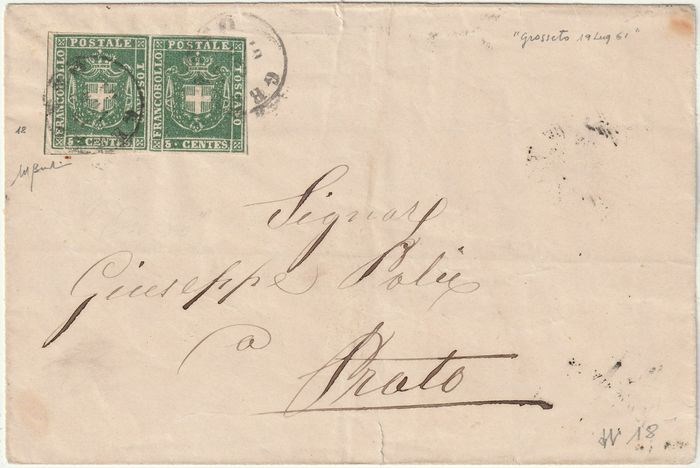 "Grosseto 19 Lug 61"
POSTALE POSTALE
FRANCOBOLLO TOSCANO FRANCOBOLLO TOSCANO
5 · CENTES 5 · CENTES
18
Signor
Giuseppe
a
Prato
18